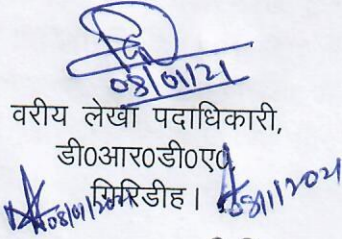 08/01/21
वरीय लेखा पदाधिकारी,
डी0आर0डी0ए0
गिरिडीह।
08/01/2021
8/1/2021